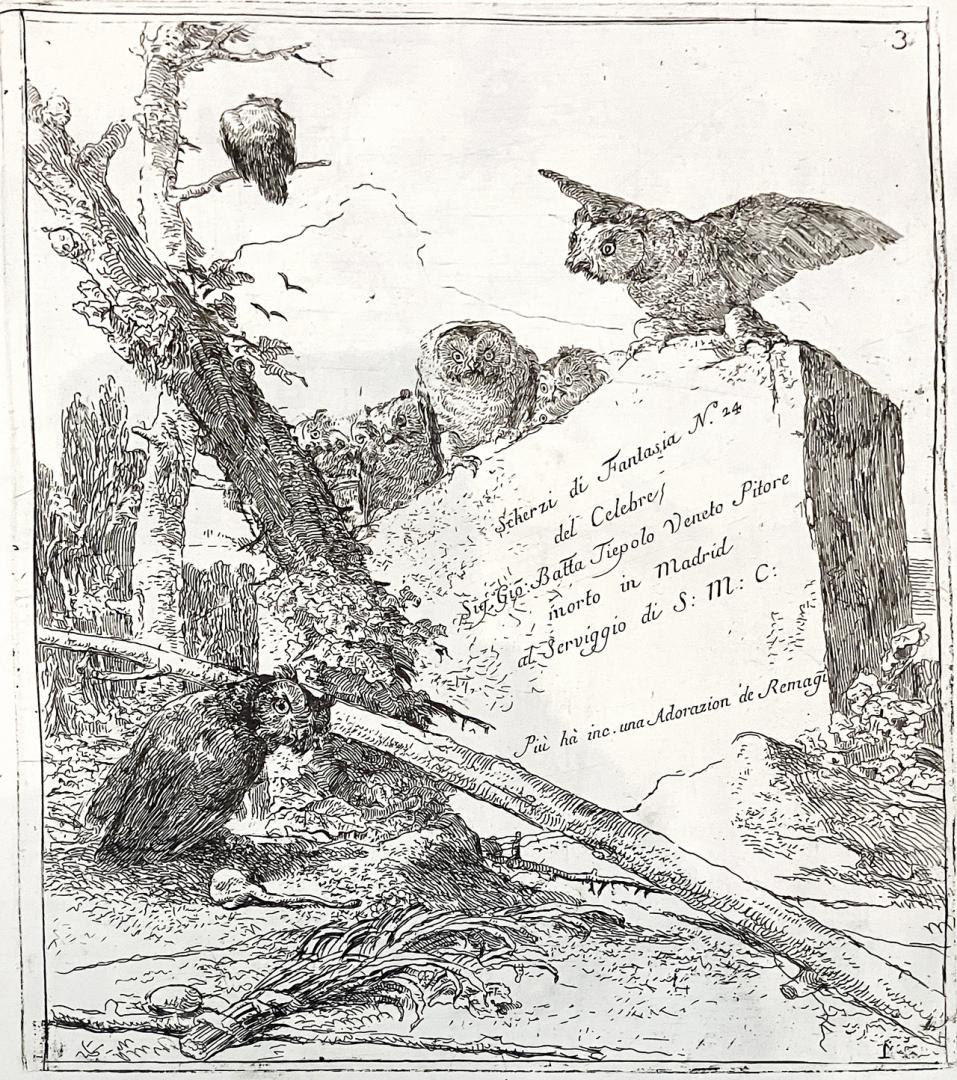 3
Scherzi di Fantasia N.º 24
del Celebre
Sig. Gio. Batta Tiepolo Veneto Pitore
morto in Madrid
al Serviggio di S: M: C:
Più hà inc. una Adorazion de Remagi
1